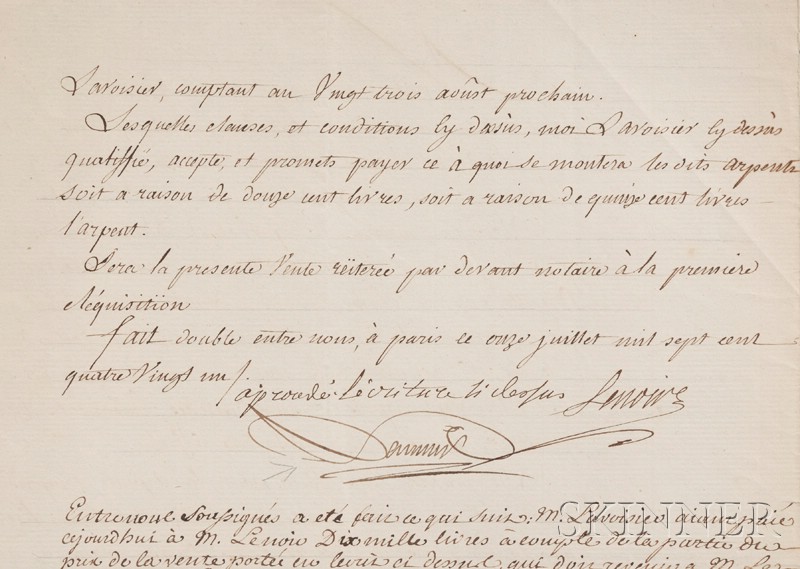 Lavoisier, comptant au Vingt trois aoûst prochain.
Lesquelles clauses, et conditions cy dessùs, moi Lavoisier cy dessùs
qualiffié, accepte, et promets payer ce à quoi se montera les dits arpents
soit a raison de douze cent livres, soit a raison de quinze cent livres
l'arpent.
Sera la presente Vente réïterée par devant notaire à la premiere
réquisition
fait double entre nous, à paris ce onze juillet mil sept cent
quatre Vingt un /
aprouvé l'écriture ci dessus Lenoir
Entre nous soussignés a été fait ce qui suit: M. Lavoisier ayant payé
cejourdhui à M. Lenoir Dix mille livres à compte de la partie du
prix de la vente portée en l'ecrit ci dessus, qui doit revenir à M. Le
SKINNER